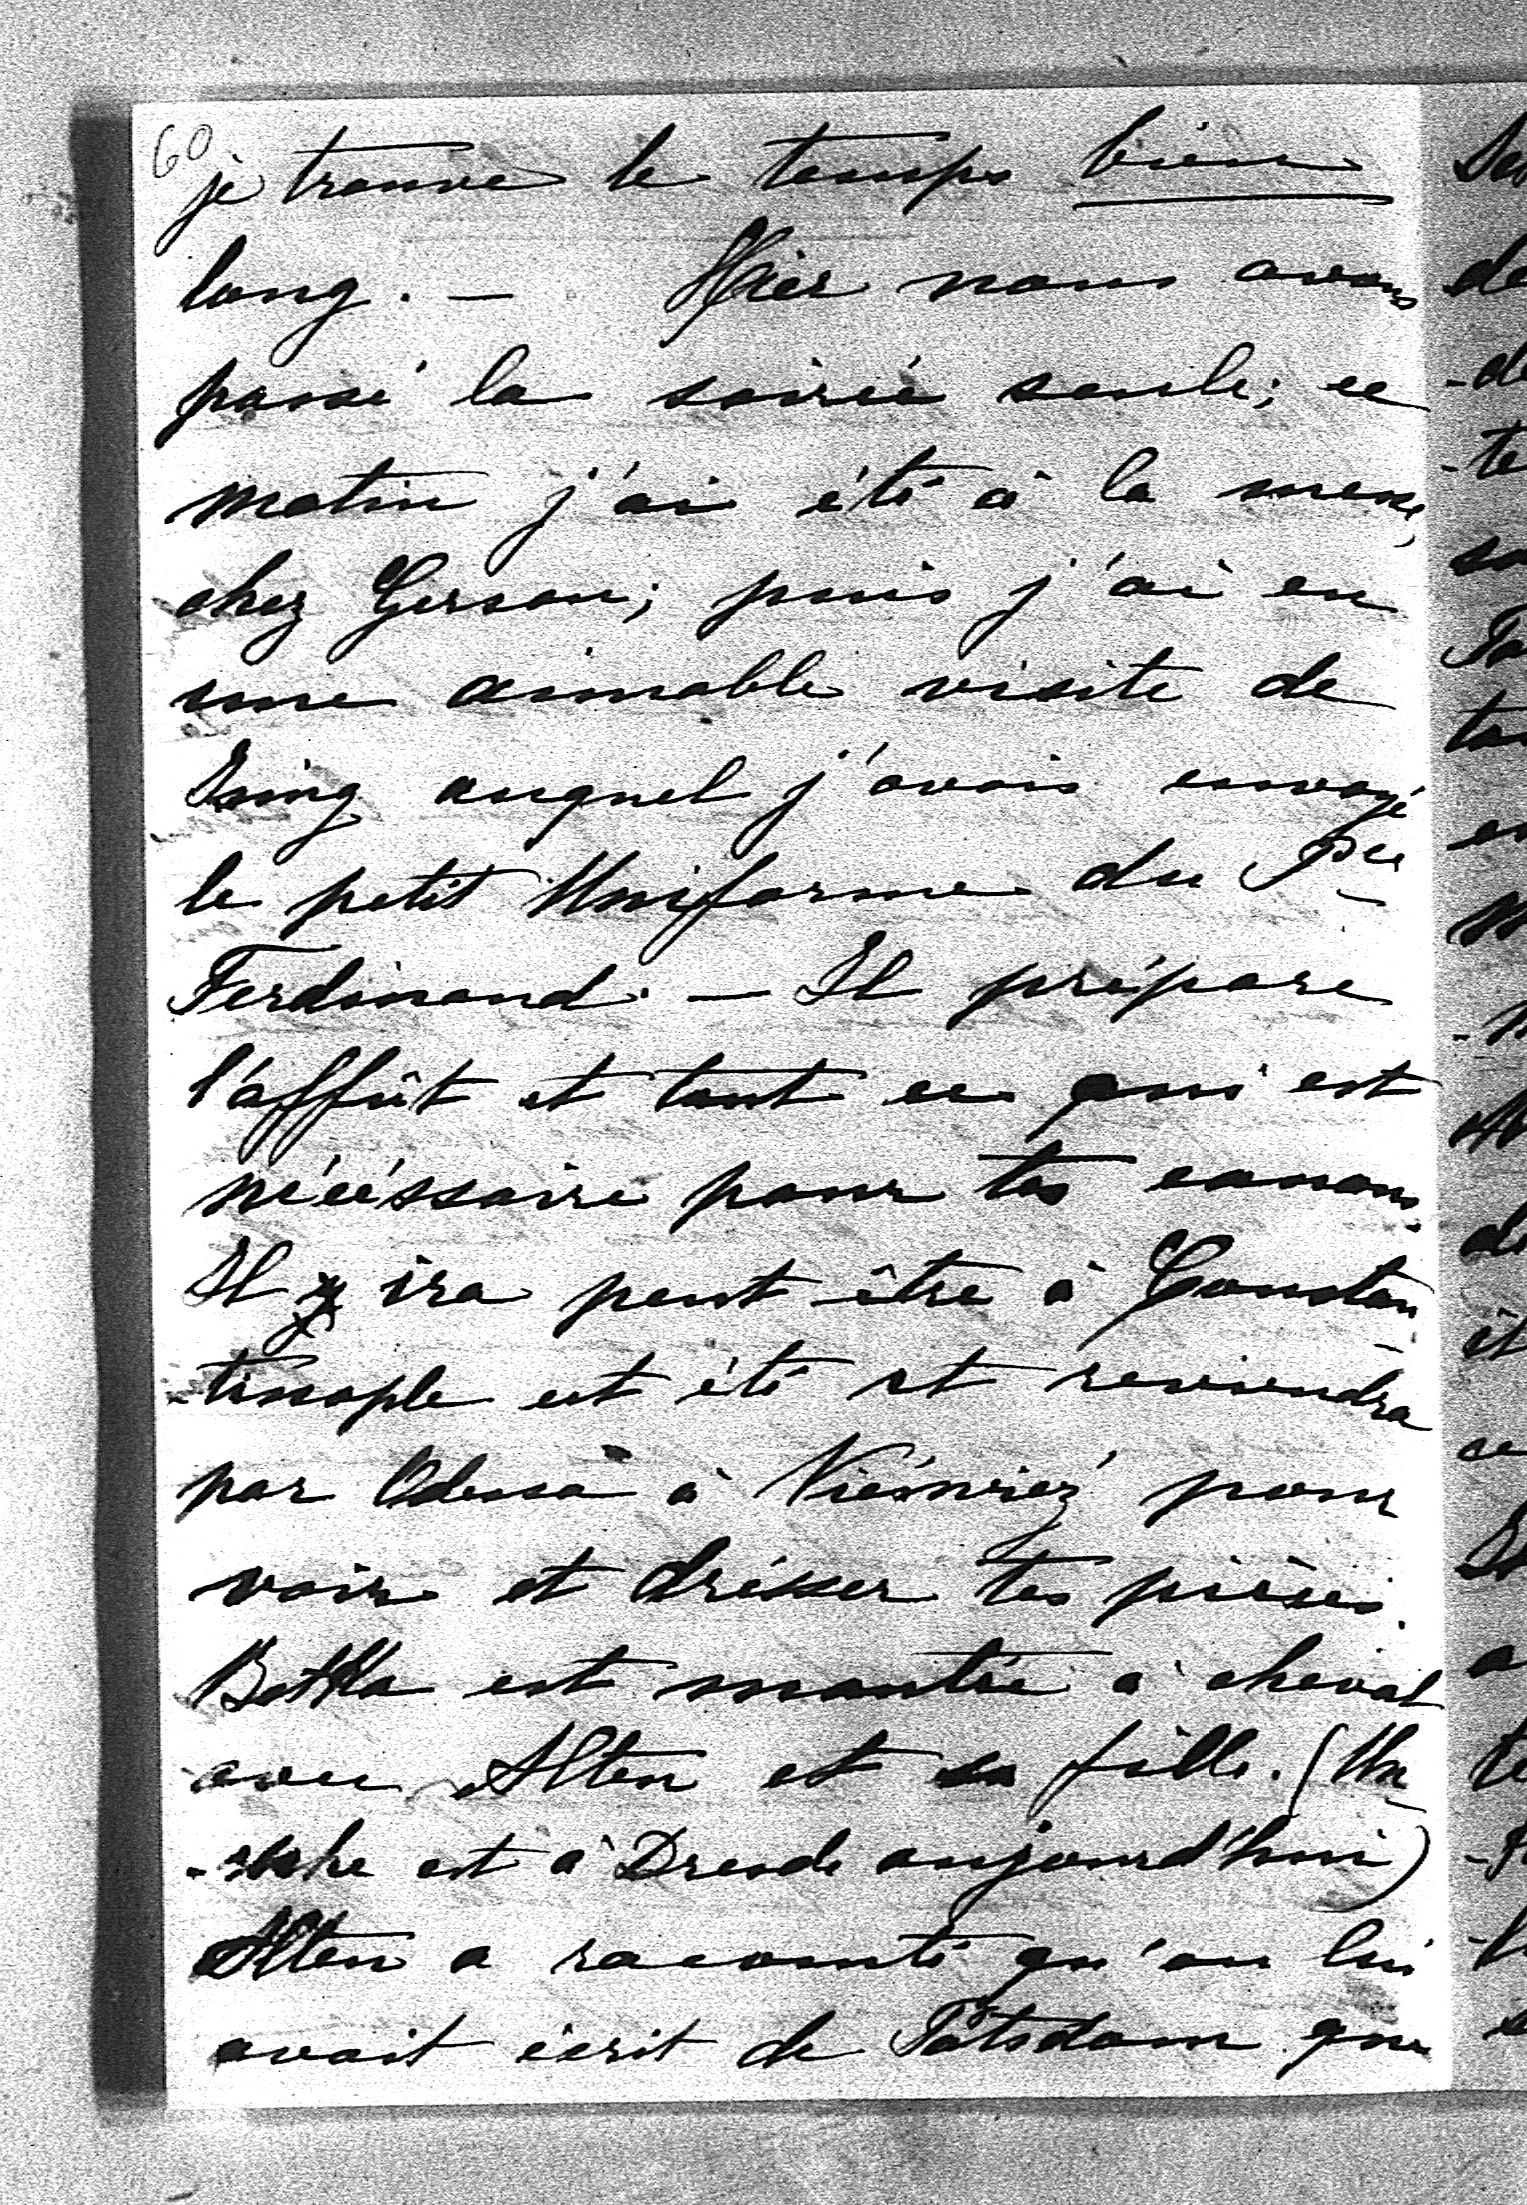 60
je trouve le temps bien
long. — Hier nous avons
passé la soirée seule; ce
matin j'ai été à la messe,
chez Gerson; puis j'ai eu
une aimable visite de
Ising auquel j'avais envoyé
le petit Uniforme du Pce
Ferdinand. — Il prépare
l'affût et tout ce qui est
nécéssaire pour tes canons.
Il ira peut être à Constan
-tinople cet été et reviendra
par Odessa à Niéswiez pour
voir et drésser tes pièces.
Betka est montée à cheval
avec Alten et sa fille. (Un
-ruhe est à Dresde aujourd'hui)
Alten a raconté qu'on lui
avait écrit de Potsdam que